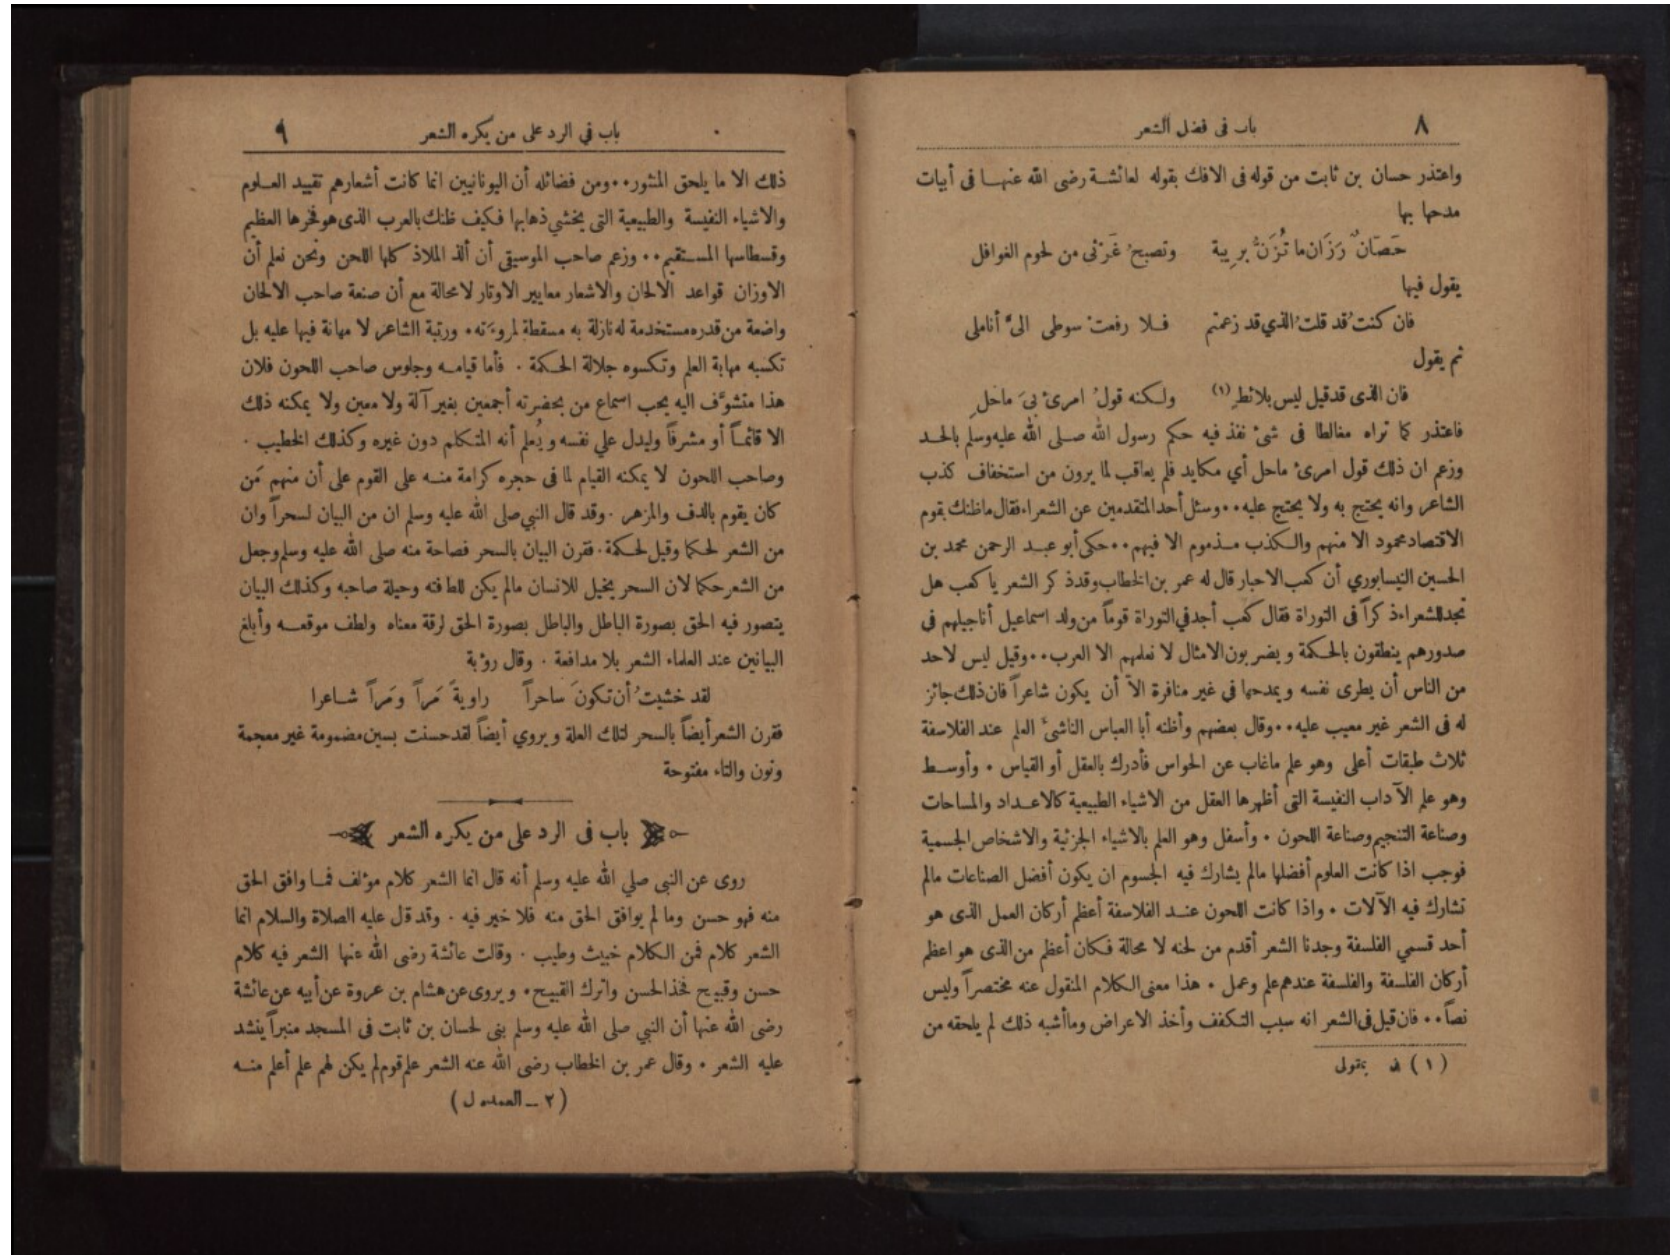 ٨
باب فى فضل الشعر
واعتذر حسان بن ثابت من قوله فى الافك بقوله لعائشة رضى الله عنها فى أبيات
مدحها بها
حَصَانٌ رَزَان ما تُزَنُّ برِيبة وتصبحُ غَرْثى من لحوم الغوافل
يقول فيها
فان كنتُ قد قلتُ الذي قد زعمتم فلا رفعتْ سوطى الىَّ أناملى
ثم يقول
فان الذى قد قيل ليس بلائطٍ (١) ولكنه قولُ امرئ بىَ ماحلِ
فاعتذر كما تراه مغالطا فى شئ نفذ فيه حكم رسول الله صلى الله عليه وسلم بالحد
وزعم ان ذلك قول امرئ ماحل أي مكايد فلم يعاقب لما يرون من استخفاف كذب
الشاعر وانه يحتج به ولا يحتج عليه٠٠وسئل أحد المتقدمين عن الشعراء فقال ماظنك بقوم
الاقتصاد محمود الا منهم والكذب مذموم الا فيهم٠٠حكى أبو عبد الرحمن محمد بن
الحسين النيسابوري أن كعب الاحبار قال له عمر بن الخطاب وقد ذكر الشعر يا كعب هل
تجد للشعراء ذكراً فى التوراة فقال كعب أجد في التوراة قوماً من ولد اسماعيل أناجيلهم فى
صدورهم ينطقون بالحكمة ويضربون الامثال لا نعلمهم الا العرب٠٠وقيل ليس لاحد
من الناس أن يطرى نفسه ويمدحها فى غير منافرة الاّ أن يكون شاعراً فان ذلك جائز
له فى الشعر غير معيب عليه٠٠وقال بعضهم وأظنه أبا العباس الناشئ العلم عند الفلاسفة
ثلاث طبقات أعلى وهو علم ماغاب عن الحواس فأدرك بالعقل أو القياس ٠ وأوسط
وهو علم الآداب النفيسة التى أظهرها العقل من الاشياء الطبيعية كالاعداد والمساحات
وصناعة التنجيم وصناعة اللحون ٠ وأسفل وهو العلم بالاشياء الجزئية والاشخاص الجسمية
فوجب اذا كانت العلوم أفضلها مالم يشارك فيه الجسوم ان يكون أفضل الصناعات مالم
تشارك فيه الآلات ٠ واذا كانت اللحون عند الفلاسفة أعظم أركان العمل الذى هو
أحد قسمي الفلسفة وجدنا الشعر أقدم من لحنه لا محالة فكان أعظم من الذى هو اعظم
أركان الفلسفة والفلسفة عندهم علم وعمل ٠ هذا معنى الكلام المنقول عنه مختصراً وليس
نصاً٠٠ فان قيل فى الشعر انه سبب التكفف وأخذ الاعراض وما أشبه ذلك لم يلحقه من
(١) بقولى
باب في الرد على من يكره الشعر
٩
ذلك الا ما يلحق المنثور٠٠ومن فضائله أن اليونانيين انما كانت أشعارهم تقييد العلوم
والاشياء النفيسة والطبيعية التى يخشي ذهابها فكيف ظنك بالعرب الذى هو فخرها العظيم
وقسطاسها المستقيم٠٠ وزعم صاحب الموسيقى أن ألذ الملاذ كلها اللحن ونحن نعلم أن
الاوزان قواعد الالحان والاشعار معايير الاوتار لامحالة مع أن صنعة صاحب الالحان
واضعة من قدره مستخدمة له نازلة به مسقطة لمروءته٠ ورتبة الشاعر لا مهانة فيها عليه بل
تكسبه مهابة العلم وتكسوه جلالة الحكمة ٠ فأما قيامه وجلوس صاحب اللحون فلان
هذا متشوَّف اليه يحب اسماع من بحضرته أجمعين بغير آلة ولا معين ولا يمكنه ذلك
الا قائماً أو مشرفاً وليدل علي نفسه ويُعلم أنه المتكلم دون غيره وكذلك الخطيب ٠
وصاحب اللحون لا يمكنه القيام لما فى حجره كرامة منه على القوم على أن منهم مَن
كان يقوم بالدف والمزهر ٠وقد قال النبي صلى الله عليه وسلم ان من البيان لسحراً وان
من الشعر لحكما وقيل لحكمة٠فقرن البيان بالسحر فصاحة منه صلى الله عليه وسلم وجعل
من الشعر حكما لان السحر يخيل للانسان مالم يكن للطافته وحيلة صاحبه وكذلك البيان
يتصور فيه الحق بصورة الباطل والباطل بصورة الحق لرقة معناه ولطف موقعه وأبلغ
البيانين عند العلماء الشعر بلا مدافعة ٠ وقال رؤبة
لقد خشيتُ أن تكونَ ساحراً راويةً مَراً ومَراً شاعرا
فقرن الشعر أيضاً بالسحر لتلك العلة ويروي أيضاً لقد حسنت بسين مضمومة غير معجمة
ونون والتاء مفتوحة
باب فى الرد على من يكره الشعر
روى عن النبي صلي الله عليه وسلم أنه قال انما الشعر كلام مؤلف فما وافق الحق
منه فهو حسن وما لم يوافق الحق منه فلا خير فيه ٠ وقد قل عليه الصلاة والسلام انما
الشعر كلام فمن الكلام خبيث وطيب ٠ وقالت عائشة رضى الله عنها الشعر فيه كلام
حسن وقبيح فخذ الحسن واترك القبيح٠ ويروى عن هشام بن عروة عن أبيه عن عائشة
رضى الله عنها أن النبي صلى الله عليه وسلم بنى لحسان بن ثابت فى المسجد منبراً ينشد
عليه الشعر ٠ وقال عمر بن الخطاب رضى الله عنه الشعر علم قوم لم يكن لهم علم أعلم منه
(٢ ـ العمده ل)